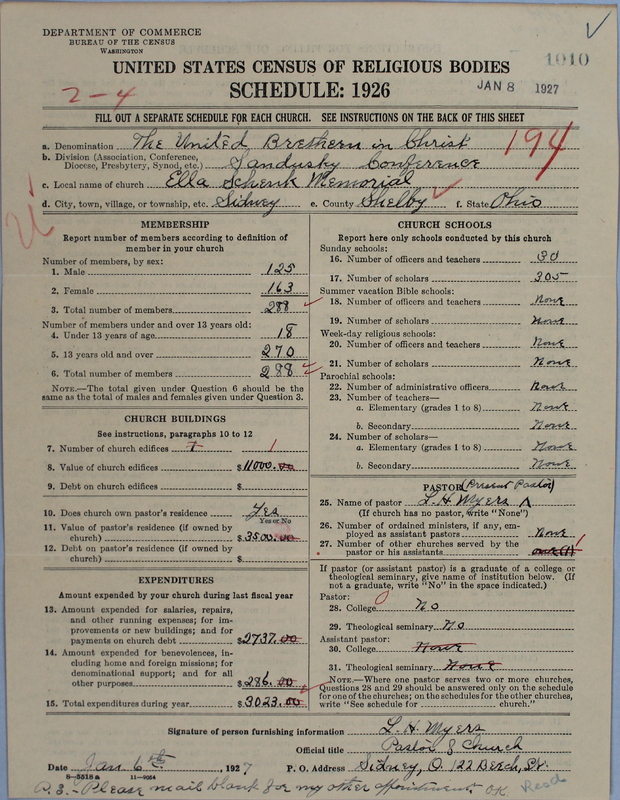 DEPARTMENT OF COMMERCE
BUREAU OF THE CENSUS
WASHINGTON
1010
UNITED STATES CENSUS OF RELIGIOUS BODIES
SCHEDULE: 1926
JAN 8 1927
2-4
FILL OUT A SEPARATE SCHEDULE FOR EACH CHURCH. SEE INSTRUCTIONS ON THE BACK OF THIS SHEET
a. Denomination The United Brethern in Christ
194
b. Division (Association, Conference,
Diocese, Presbytery, Synod, etc.) Sandusky Conference
c. Local name of church Ella Schenk Memorial
d. City, town, village, or township, etc. Sidney e. County Shelby f. State Ohio
MEMBERSHIP
Report number of members according to definition of
member in your church
Number of members, by sex:
1. Male 125
2. Female 163
3. Total number of members 288
Number of members under and over 13 years old:
4. Under 13 years of age 18
5. 13 years old and over 270
6. Total number of members 288
NOTE.—The total given under Question 6 should be the
same as the total of males and females given under Question 3.
CHURCH BUILDINGS
See instructions, paragraphs 10 to 12
7. Number of church edifices 1 1
8. Value of church edifices $11000.00
9. Debt on church edifices $
10. Does church own pastor's residence Yes
Yes or No
11. Value of pastor's residence (if owned by
church) $3500.00
12. Debt on pastor's residence (if owned by
church) $
EXPENDITURES
Amount expended by church during last fiscal year
13. Amount expended for salaries, repairs,
and other running expenses; for im-
provements or new buildings; and for
payments on church debt $2737.00
14. Amount expended for benevolences, in-
cluding home and foreign missions; for
denominational support; and for all
other purposes $286.00
15. Total expenditures during year $3023.00
CHURCH SCHOOLS
Report here only schools conducted by this church
Sunday schools:
16. Number of officers and teachers 30
17. Number of scholars 305
Summer vacation Bible schools:
18. Number of officers and teachers None
19. Number of scholars None
Week-day religious schools:
20. Number of officers and teachers None
21. Number of scholars None
Parochial schools:
22. Number of administrative officers None
23. Number of teachers—
a. Elementary (grades 1 to 8) None
b. Secondary None
24. Number of scholars—
a. Elementary (grades 1 to 8) None
b. Secondary None
PASTOR (Present Pastor)
25. Name of pastor L. H. Myers
(If church has no pastor, write "None")
26. Number of ordained ministers, if any, em-
ployed as assistant pastors None
27. Number of other churches served by the
pastor or his assistants one (1) 1
If pastor (or assistant pastor) is a graduate of a college or
theological seminary, give name of institution below. (If
not a graduate, write "No" in the space indicated.)
Pastor:
28. College No
29. Theological seminary No
Assistant pastor:
30. College None
31. Theological seminary None
NOTE.—Where one pastor serves two or more churches,
Questions 28 and 29 should be answered only on the schedule
for one of the churches; on the schedules for the other churches,
write "See schedule for church."
Signature of person furnishing information L. H. Myers
Official title Pastor of Church
Date Jan 6th, 1927 P. O. Address Sidney, O. 122 Beech, St.
8—2518a 11—9054
P.S.- Please mail blank for my other appointment O.K. Read